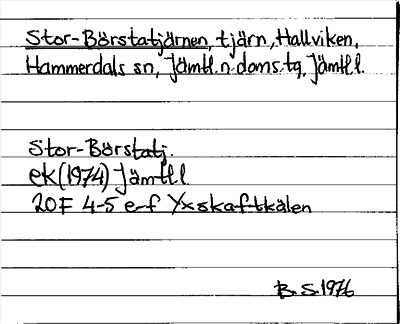 Stor-Börstatjärnen, tjärn, Hallviken,
Hammerdals sn, Jämtl.n.doms.tg, Jämtl l.
Stor-Börstatj.
ek (1974) Jämtl l
20F 4-5 e-f Yxskaftkälen
B.S.1976